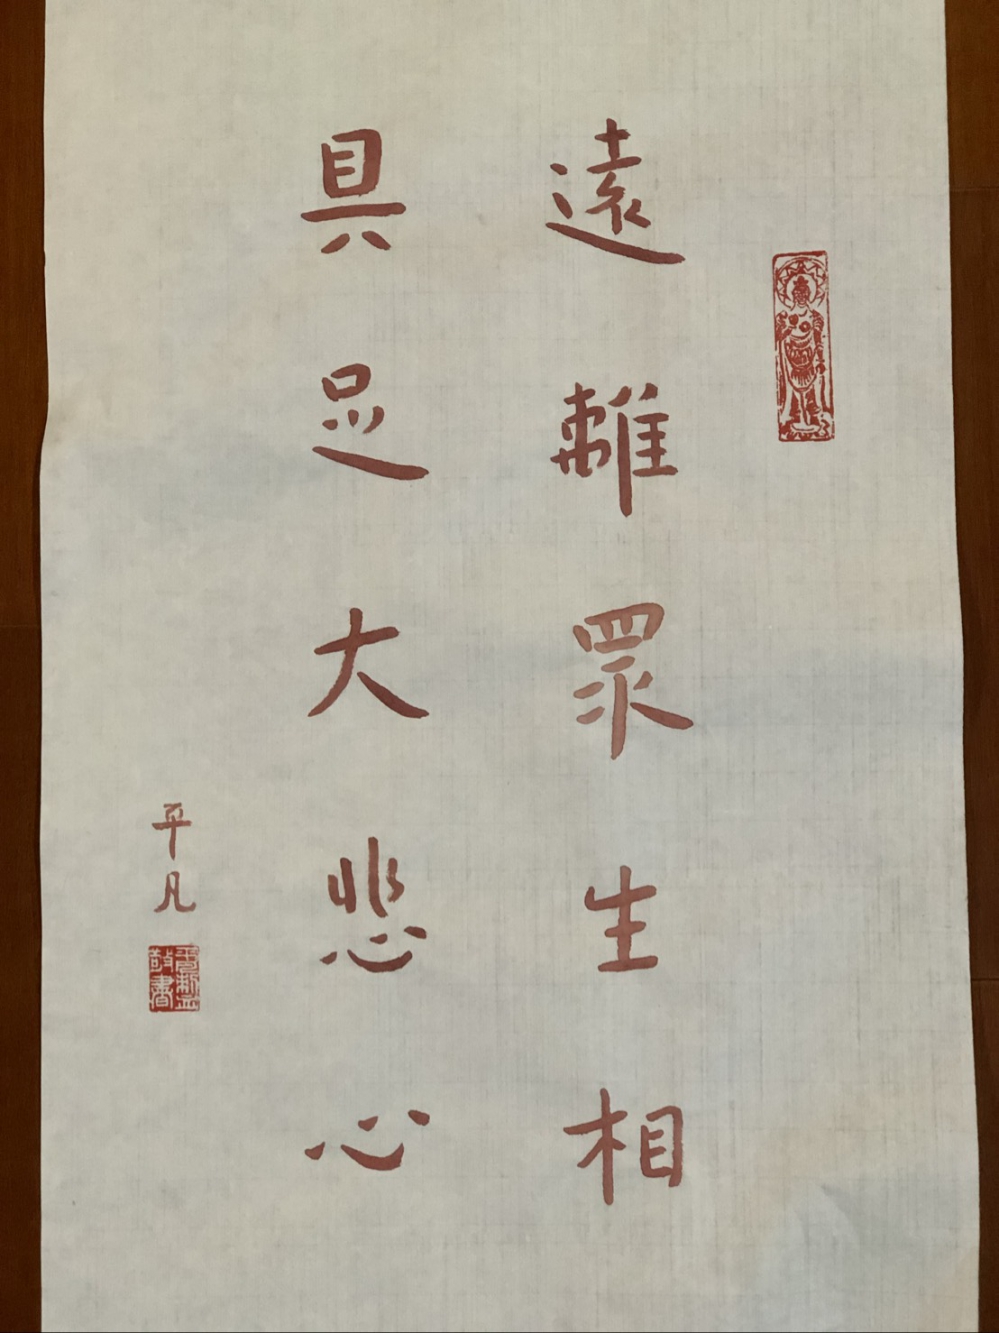 遠離眾生相
具足大悲心
平凡